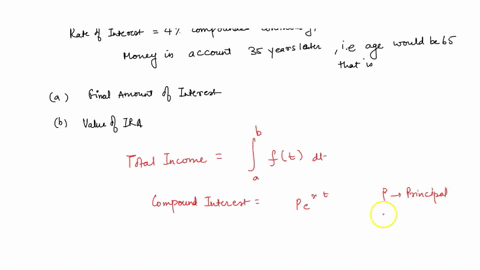 Rate of Interest = 4% compounded
Money in account 35 years later, i.e age would be 65
that is
(a) Final Amount of Interest
(b) Value of IRA
Total Income = ∫ₐᵇ f(t) dt
Compound Interest = Pe^rt P → Principal